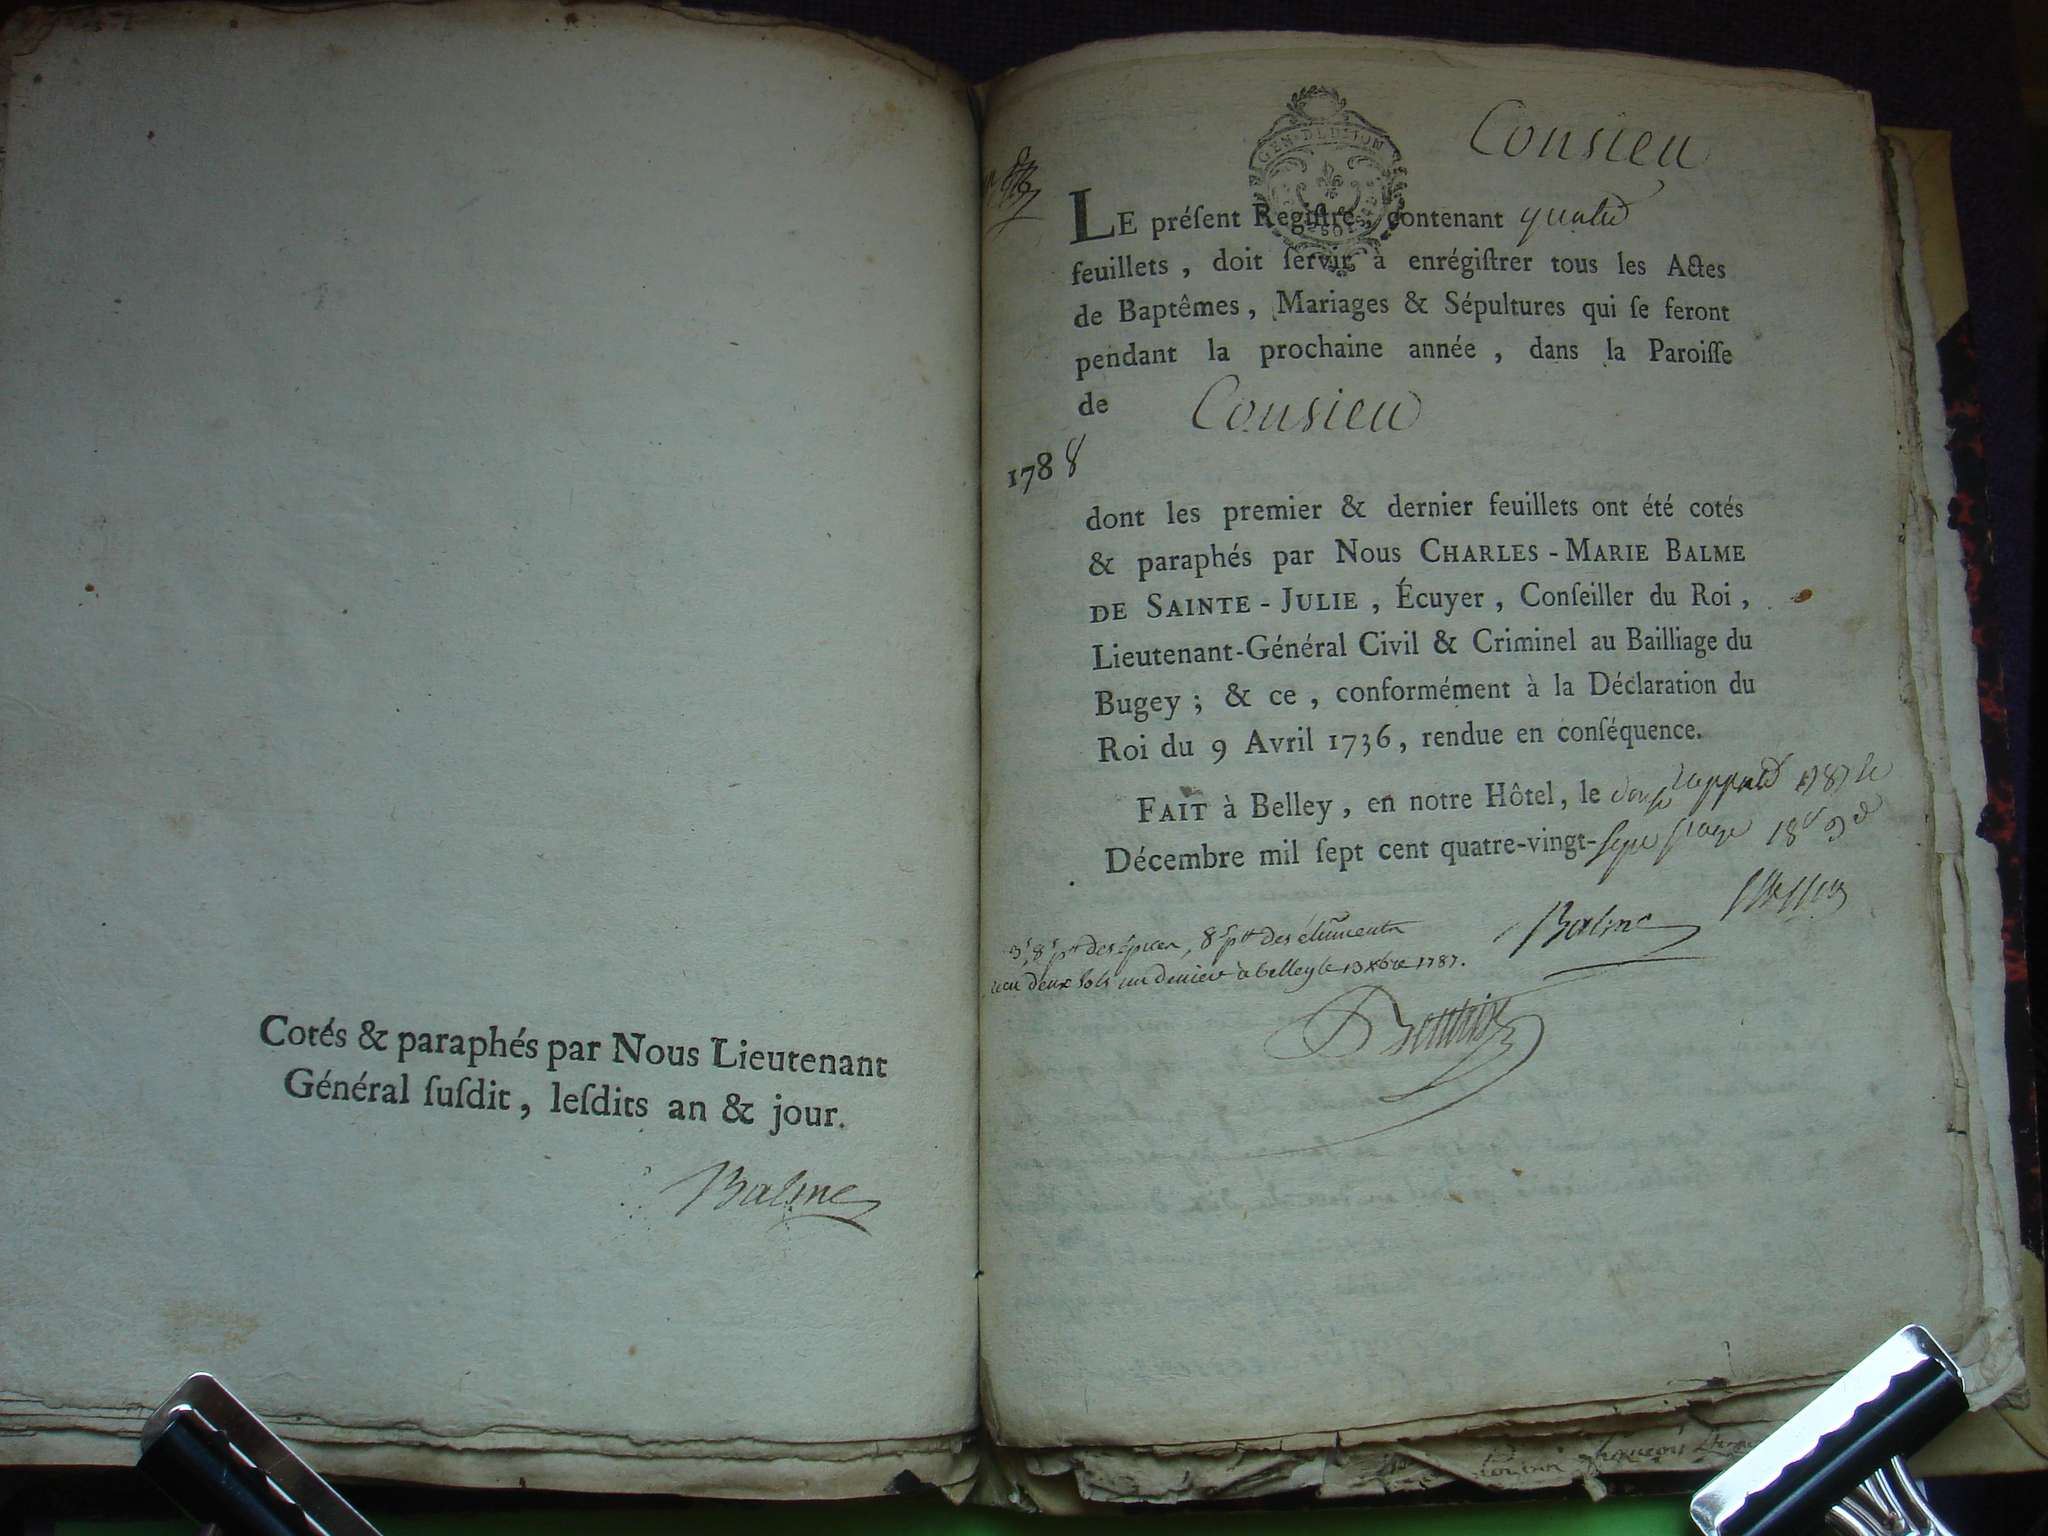 Cotés & paraphés par Nous Lieutenant
Général ſuſdit, leſdits an & jour.
Balme
GEN. DE DIJON
Consieu
LE préſent Regiſtre, contenant quatre
feuillets, doit ſervir à enrégiſtrer tous les Actes
de Baptêmes, Mariages & Sépultures qui ſe feront
pendant la prochaine année, dans la Paroiſſe
de Consieu
1788
dont les premier & dernier feuillets ont été cotés
& paraphés par Nous CHARLES-MARIE BALME
DE SAINTE-JULIE, Écuyer, Conſeiller du Roi,
Lieutenant-Général Civil & Criminel au Bailliage du
Bugey; & ce, conformément à la Déclaration du
Roi du 9 Avril 1736, rendue en conſéquence.
FAIT à Belley, en notre Hôtel, le
Décembre mil ſept cent quatre-vingt-ſept
Balme
deux sols un denier à belley le 13 xbre 1787.